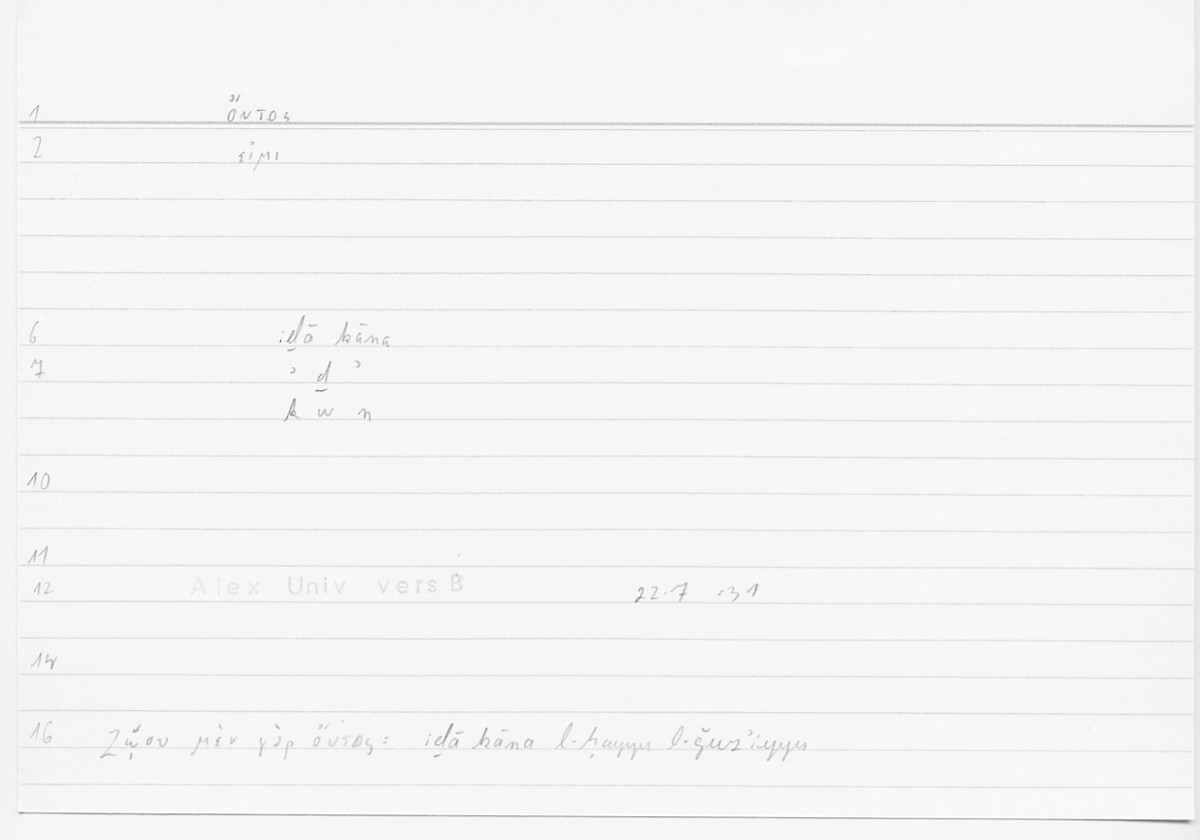 1 ὄντος
2 εἰμι
6 iḏā kāna
7 ʾ ḏ ʾ
k w n
10
11
12 Alex Univ vers B 22.7 =31
14
16 Ζῴου μὲν γὰρ ὄντος: iḏā kāna l-ḥayyu l-ǧuzʾiyyu